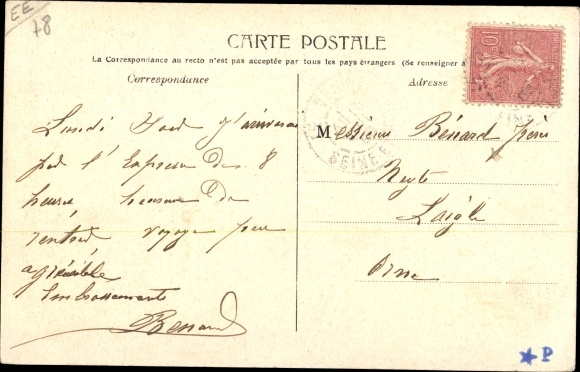 EE
78
CARTE POSTALE
La Correspondance au recto n'est pas acceptée par tous les pays étrangers (Se renseigner à
Correspondance
Adresse
10
Lundi soir j'arriverai
par l'Express des 8
heures heureux de
rentrer voyage peu
agréable
Embrassements
Bénard
Messieurs Bénard frères
Laigle
Orne
SEINE
P